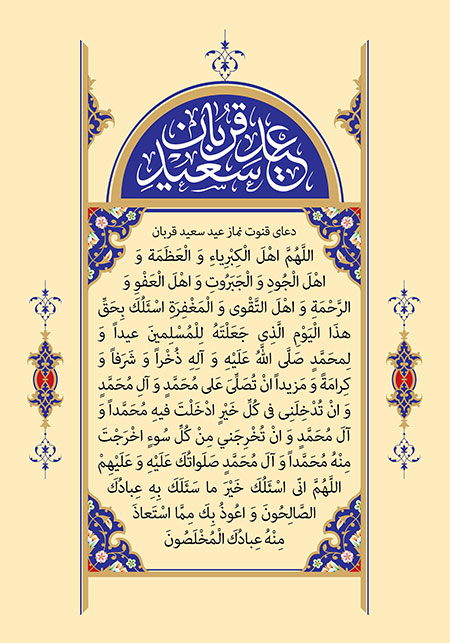 عید سعید قربان
دعای قنوت نماز عید سعید قربان
اللَّهُمَّ اهْلَ الْكِبْرِياءِ وَ الْعَظَمَة وَ
اهْلَ الْجُودِ وَ الْجَبَروُتِ وَ اهْلَ الْعَفْوِ وَ
الرَّحْمَةِ وَ اهْلَ التَّقْوى وَ الْمَغْفِرَةِ اسْئَلُكَ بِحَقِّ
هذَا الْيَوْمِ الَّذي جَعَلْتَهُ لِلْمُسْلِمينَ عيداً وَ
لِمحَمَّدٍ صَلَّى اللهُ عَلَيْهِ وَ آلِهِ ذُخْراً وَ شَرَفاً وَ
كِرامَةً وَ مَزيداً انْ تُصَلِّىَ عَلى مُحَمَّدٍ وَ آلِ مُحَمَّدٍ
وَ انْ تُدْخِلَنِى فى كُلِّ خَيْرٍ ادْخَلْتَ فيهِ مُحَمَّداً وَ
آلَ مُحَمَّدٍ وَ انْ تُخْرِجَني مِنْ كُلِّ سُوءٍ اخْرَجْتَ
مِنْهُ مُحَمَّداً وَ آلَ مُحَمَّدٍ صَلَواتُكَ عَلَيْهِ وَ عَلَيْهِمْ
اللَّهُمَّ انّى اسْئَلُكَ خَيْرَ ما سَئَلَكَ بِهِ عِبادُكَ
الصَّالِحُونَ وَ اعُوذُ بِكَ مِمَّا اسْتَعاذَ
مِنْهُ عِبادُكَ الْمُخْلَصُونَ